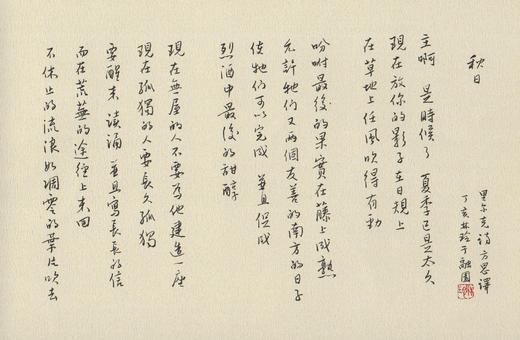 秋日
里尔克詩 方思譯
丁亥 林玲于融園
主啊 是時候了 夏季已是太久
現在放你的影子在日規上
在草地上任風吹得有勁
吩咐最後的果實在藤上成熟
允許牠們又兩個友善的南方的日子
使牠們可以完成 並且促成
烈酒中最後的甜醇
現在無屋的人不要為他建造一座
現在孤獨的人要長久孤獨
要醒來 讀誦 並且寫長長的信
而在荒蕪的途徑上來回
不休止的流浪如凋零的葉片吹去